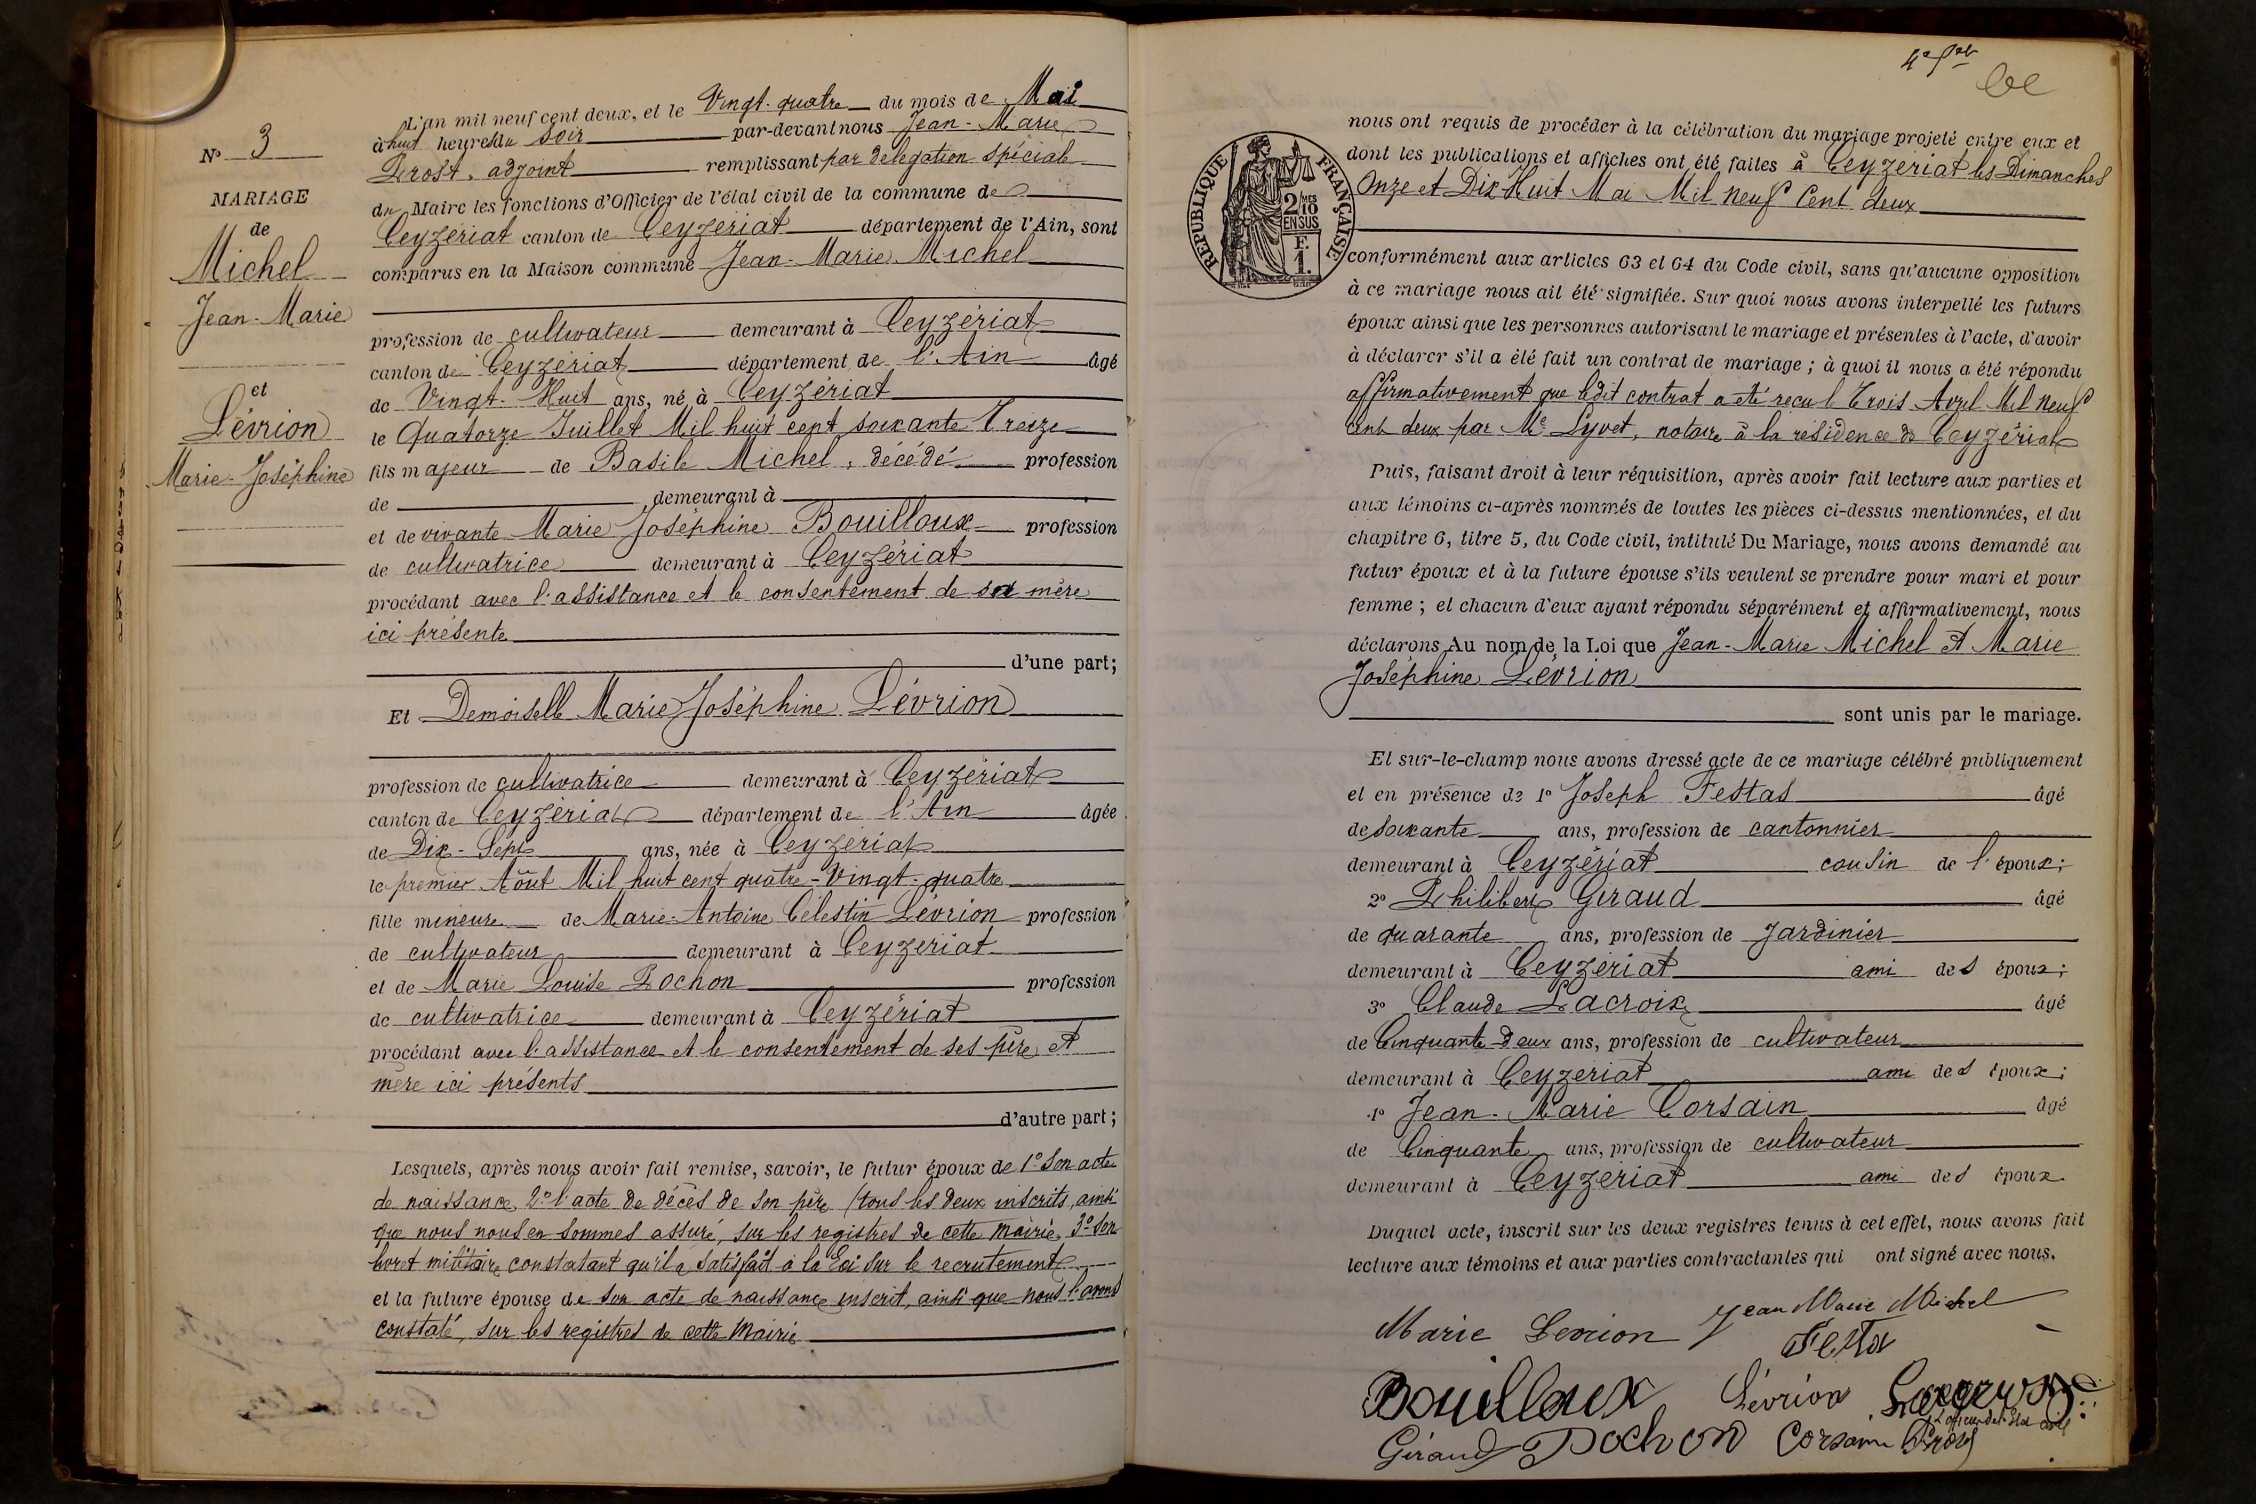 N° 3
MARIAGE
de
Michel
Jean-Marie
et
Lévrion
Marie-Joséphine
L'an mil neuf cent deux, et le Vingt-quatre du mois de Mai
à huit heures du soir par-devant nous Jean-Marie
Prost, adjoint remplissant par délégation spéciale
du Maire les fonctions d'Officier de l'état civil de la commune de
Ceyzériat canton de Ceyzériat département de l'Ain, sont
comparus en la Maison commune Jean-Marie Michel
profession de cultivateur demeurant à Ceyzériat
canton de Ceyzériat département de l'Ain âgé
de Vingt-Huit ans, né à Ceyzériat
le Quatorze Juillet Mil huit cent soixante Treize
fils majeur de Basile Michel, décédé profession
de demeurant à
et de vivante Marie Joséphine Bouilloux profession
de cultivatrice demeurant à Ceyzériat
procédant avec l'assistance et le consentement de sa mère
ici présente
d'une part;
Et Demoiselle Marie Joséphine Lévrion
profession de cultivatrice demeurant à Ceyzériat
canton de Ceyzériat département de l'Ain âgée
de Dix-Sept ans, née à Ceyzériat
le premier Août Mil huit cent quatre-Vingt-quatre
fille mineure de Marie-Antoine Célestin Lévrion profession
de cultivateur demeurant à Ceyzériat
et de Marie Louise Pochon profession
de cultivatrice demeurant à Ceyzériat
procédant avec l'assistance et le consentement de ses père et
mère ici présents
d'autre part;
Lesquels, après nous avoir fait remise, savoir, le futur époux de 1° son acte
de naissance, 2° l'acte de décès de son père (tous les deux inscrits, ainsi
que nous nous en sommes assuré, sur les registres de cette mairie, 3° son
livret militaire constatant qu'il a satisfait à la Loi sur le recrutement
et la future épouse de son acte de naissance inscrit, ainsi que nous l'avons
constaté, sur les registres de cette Mairie
REPUBLIQUE FRANÇAISE
2/10 MES
EN SUS
F.
1.
nous ont requis de procéder à la célébration du mariage projeté entre eux et
dont les publications et affiches ont été faites à Ceyzériat les Dimanches
Onze et Dix Huit Mai Mil neuf Cent deux
conformément aux articles 63 et 64 du Code civil, sans qu'aucune opposition
à ce mariage nous ait été signifiée. Sur quoi nous avons interpellé les futurs
époux ainsi que les personnes autorisant le mariage et présentes à l'acte, d'avoir
à déclarer s'il a été fait un contrat de mariage; à quoi il nous a été répondu
affirmativement que ledit contrat a été reçu l Trois Avril Mil neuf
cent deux par Me Lyvet, notaire à la résidence de Ceyzériat
Puis, faisant droit à leur réquisition, après avoir fait lecture aux parties et
aux témoins ci-après nommés de toutes les pièces ci-dessus mentionnées, et du
chapitre 6, titre 5, du Code civil, intitulé Du Mariage, nous avons demandé au
futur époux et à la future épouse s'ils veulent se prendre pour mari et pour
femme; et chacun d'eux ayant répondu séparément et affirmativement, nous
déclarons Au nom de la Loi que Jean-Marie Michel et Marie
Joséphine Lévrion
sont unis par le mariage.
Et sur-le-champ nous avons dressé acte de ce mariage célébré publiquement
et en présence de 1° Joseph Festas âgé
de soixante ans, profession de cantonnier
demeurant à Ceyzériat cousin de l'époux;
2° Philibert Giraud âgé
de quarante ans, profession de Jardinier
demeurant à Ceyzériat ami des époux;
3° Claude Lacroix âgé
de Cinquante-deux ans, profession de cultivateur
demeurant à Ceyzeriat ami des époux;
4° Jean-Marie Corsain âgé
de Cinquante ans, profession de cultivateur
demeurant à Ceyzeriat ami des époux.
Duquel acte, inscrit sur les deux registres tenus à cet effet, nous avons fait
lecture aux témoins et aux parties contractantes qui ont signé avec nous.
Marie Levrion Jean Marie Michel
Festa
Bouilloux Lévrion
L'officier de l'état civil
Giraud Pochon Corsain Prost